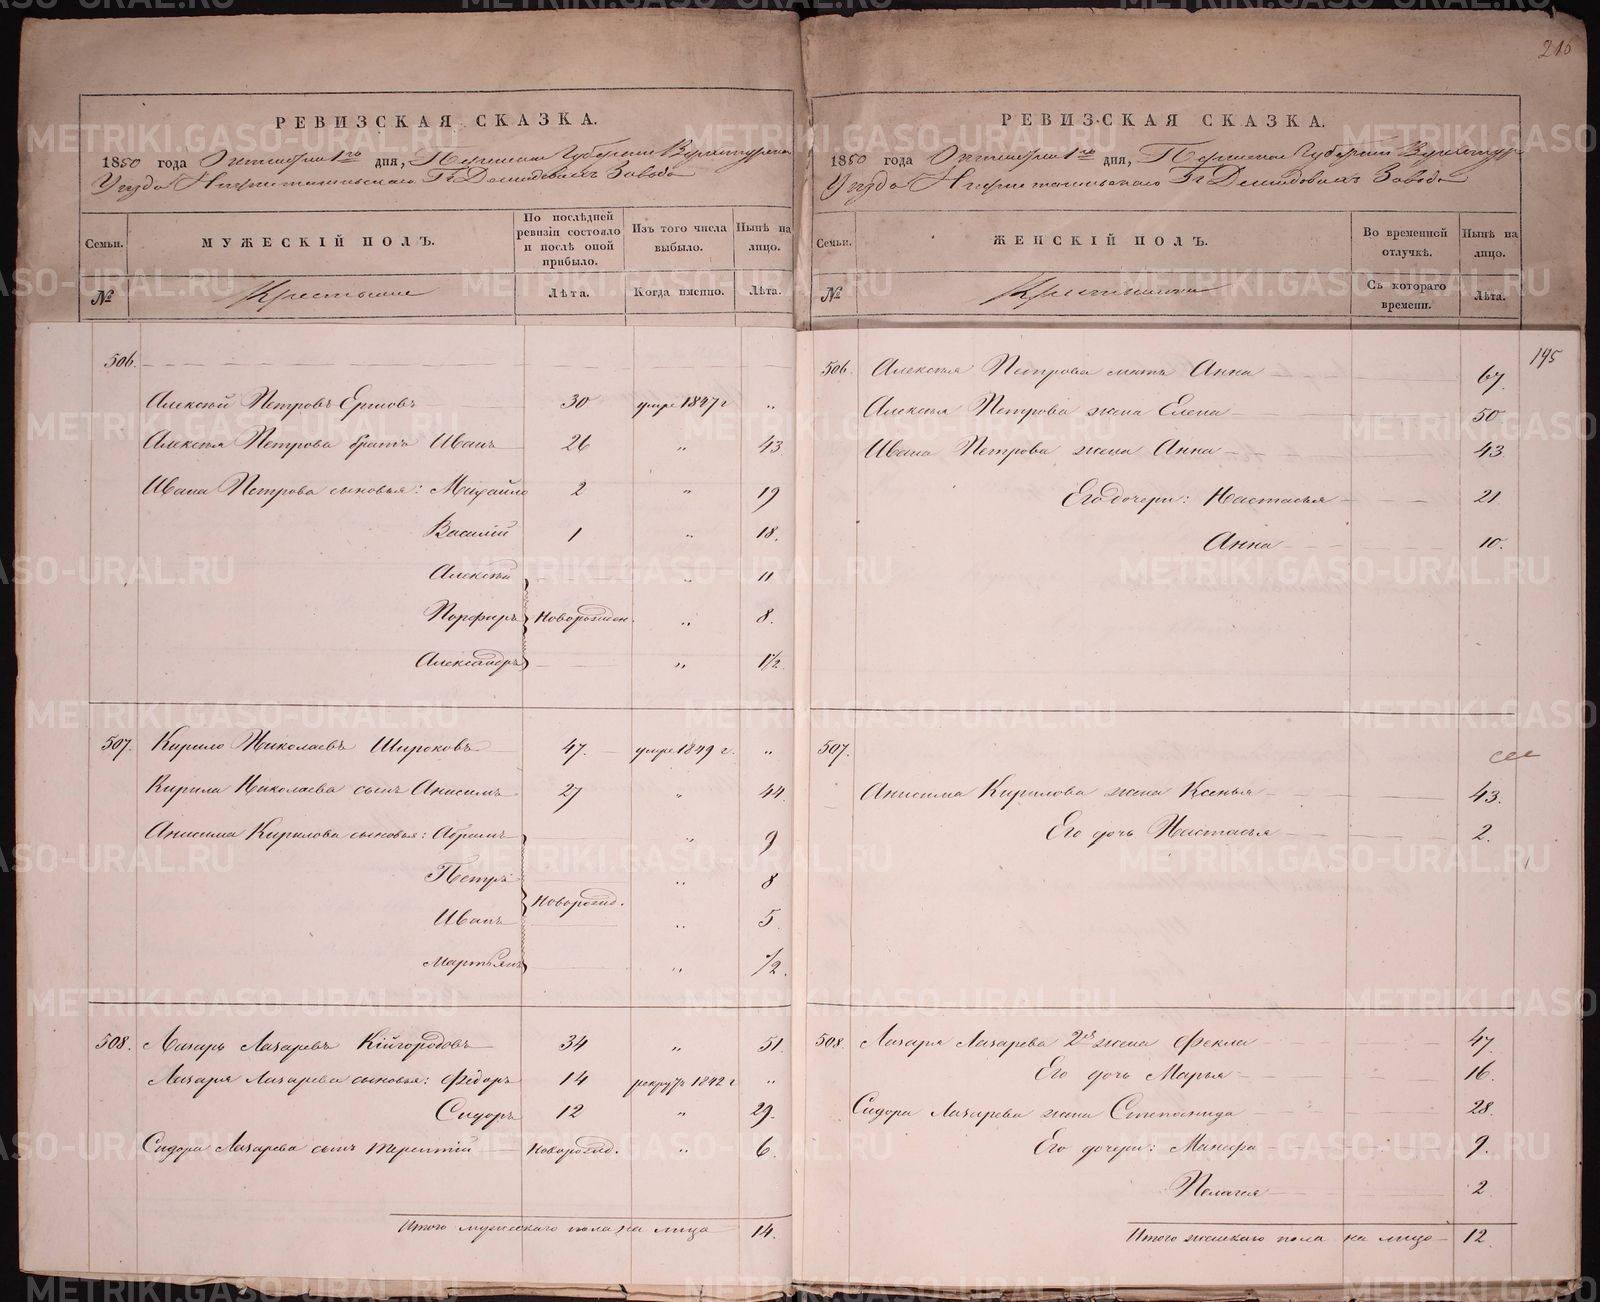 216
РЕВИЗСКАЯ СКАЗКА.
1850 года Октября 1го дня, Пермской Губернии Верхотурска
Уезда Нижнетагильскаго Гг Демидовыхъ Завода
Семьи.
МУЖЕСКІЙ ПОЛЪ.
По послѣдней ревизіи состояло и послѣ оной прибыло.
Изъ того числа выбыло.
Нынѣ на лицо.
№
Крестьяне
Лѣта.
Когда именно.
Лѣта.
506.
Алексѣй Петровъ Ершовъ 30 умре 1847 г „
Алексѣя Петрова братъ Иванъ 26 „ 43.
Ивана Петрова сыновья: Михайло 2 „ 19
Василій 1 „ 18.
Алексѣй „ 11
Порфиръ Новорожден. „ 8.
Александръ „ 1½.
507. Кирило Николаевъ Широковъ 47. умре 1849 г. „
Кирила Николаева сынъ Анисимъ 27 „ 44.
Анисима Кирилова сыновья: Абрамъ „ 9
Петръ „ 8
Новорожд.
Иванъ „ 5.
Мартьянъ „ ½.
508. Лазарь Лазаревъ Кійгородовъ 34 „ 51.
Лазаря Лазарева сыновья: Федоръ 14 рекрутъ 1842 г „
Сидоръ 12 „ 29.
Сидора Лазарева сынъ Терентій Новорожд. „ 6.
Итого мужескаго пола на лицо 14.
РЕВИЗСКАЯ СКАЗКА.
1850 года Октября 1го дня, Пермской Губерніи Верхотур
Уезда Нижнетагильскаго Гг Демидовыхъ Завода
Семьи.
ЖЕНСКІЙ ПОЛЪ.
Во временной отлучкѣ.
Нынѣ на лицо.
№
Крестьянки
Съ котораго времени.
Лѣта.
195
506. Алексѣя Петрова мать Анна 67.
Алексѣя Петрова жена Елена 50
Ивана Петрова жена Анна 43.
Его дочери: Настасья 21.
Анна 10.
507.
Анисима Кирилова жена Ксенья 43.
Его дочь Настасья 2.
508. Лазаря Лазарева 2я жена Фекла 47.
Его дочь Марья 16.
Сидора Лазарева жена Степанида 28.
Его дочери: Манефа 9.
Пелагея 2
Итого женскаго пола на лицо 12.
METRIKI.GASO-URAL.RU